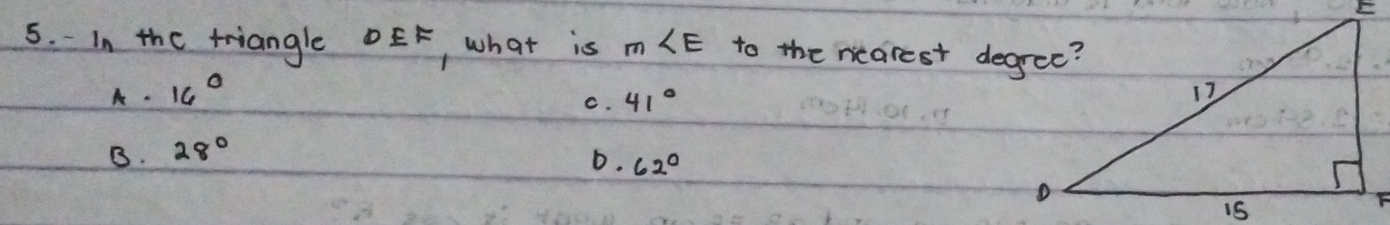 E
5.- In the triangle DEF, what is m<E to the nearest degree?
A. 16°
C. 41°
17
B. 28°
D. 62°
D
15
F